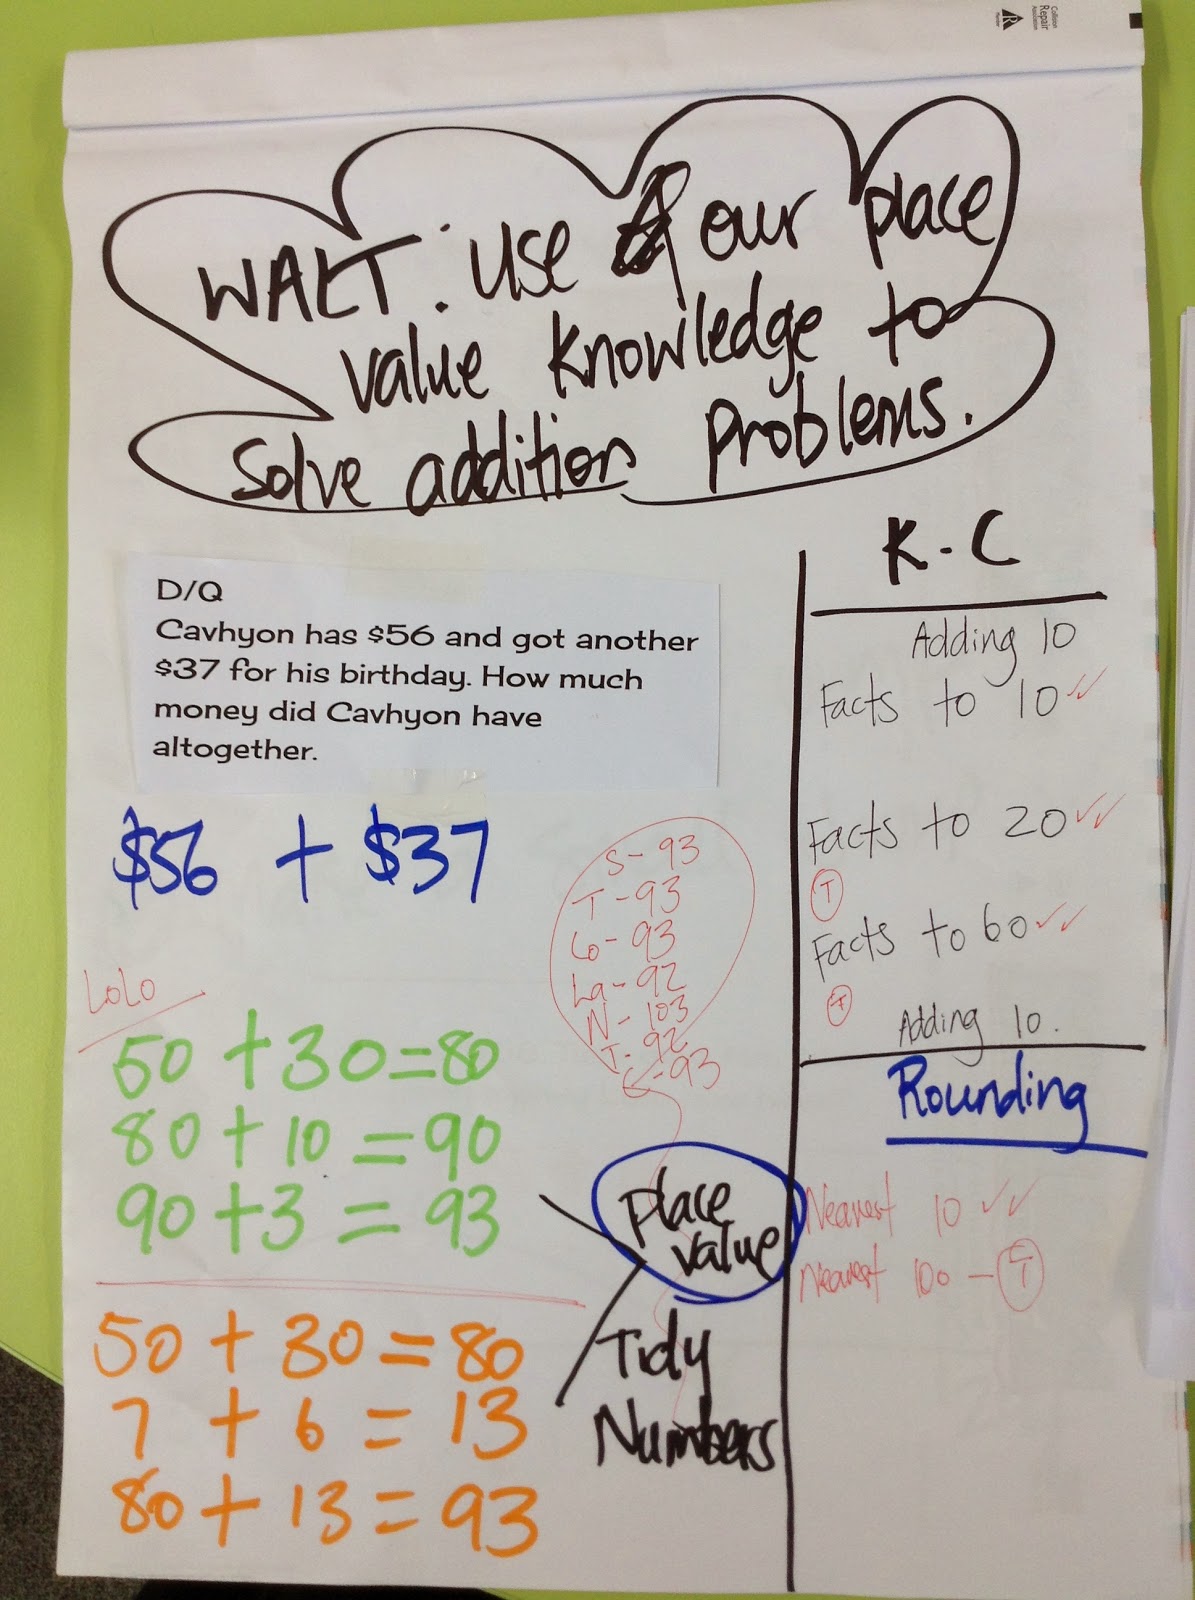 Collision
Repair
Association
WALT: use our place
value knowledge to
solve addition problems.
D/Q
Cavhyon has $56 and got another
$37 for his birthday. How much
money did Cavhyon have
altogether.
$56 + $37
S - 93
T - 93
Lo - 93
La - 92
N - 103
T - 92
C - 93
LoLo
50 + 30 = 80
80 + 10 = 90
90 + 3 = 93
50 + 30 = 80
7 + 6 = 13
80 + 13 = 93
Place
value
Tidy
Numbers
K - C
Adding 10
Facts to 10
Facts to 20
T
Facts to 60
T
Adding 10.
Rounding
Nearest 10
Nearest 100 - T